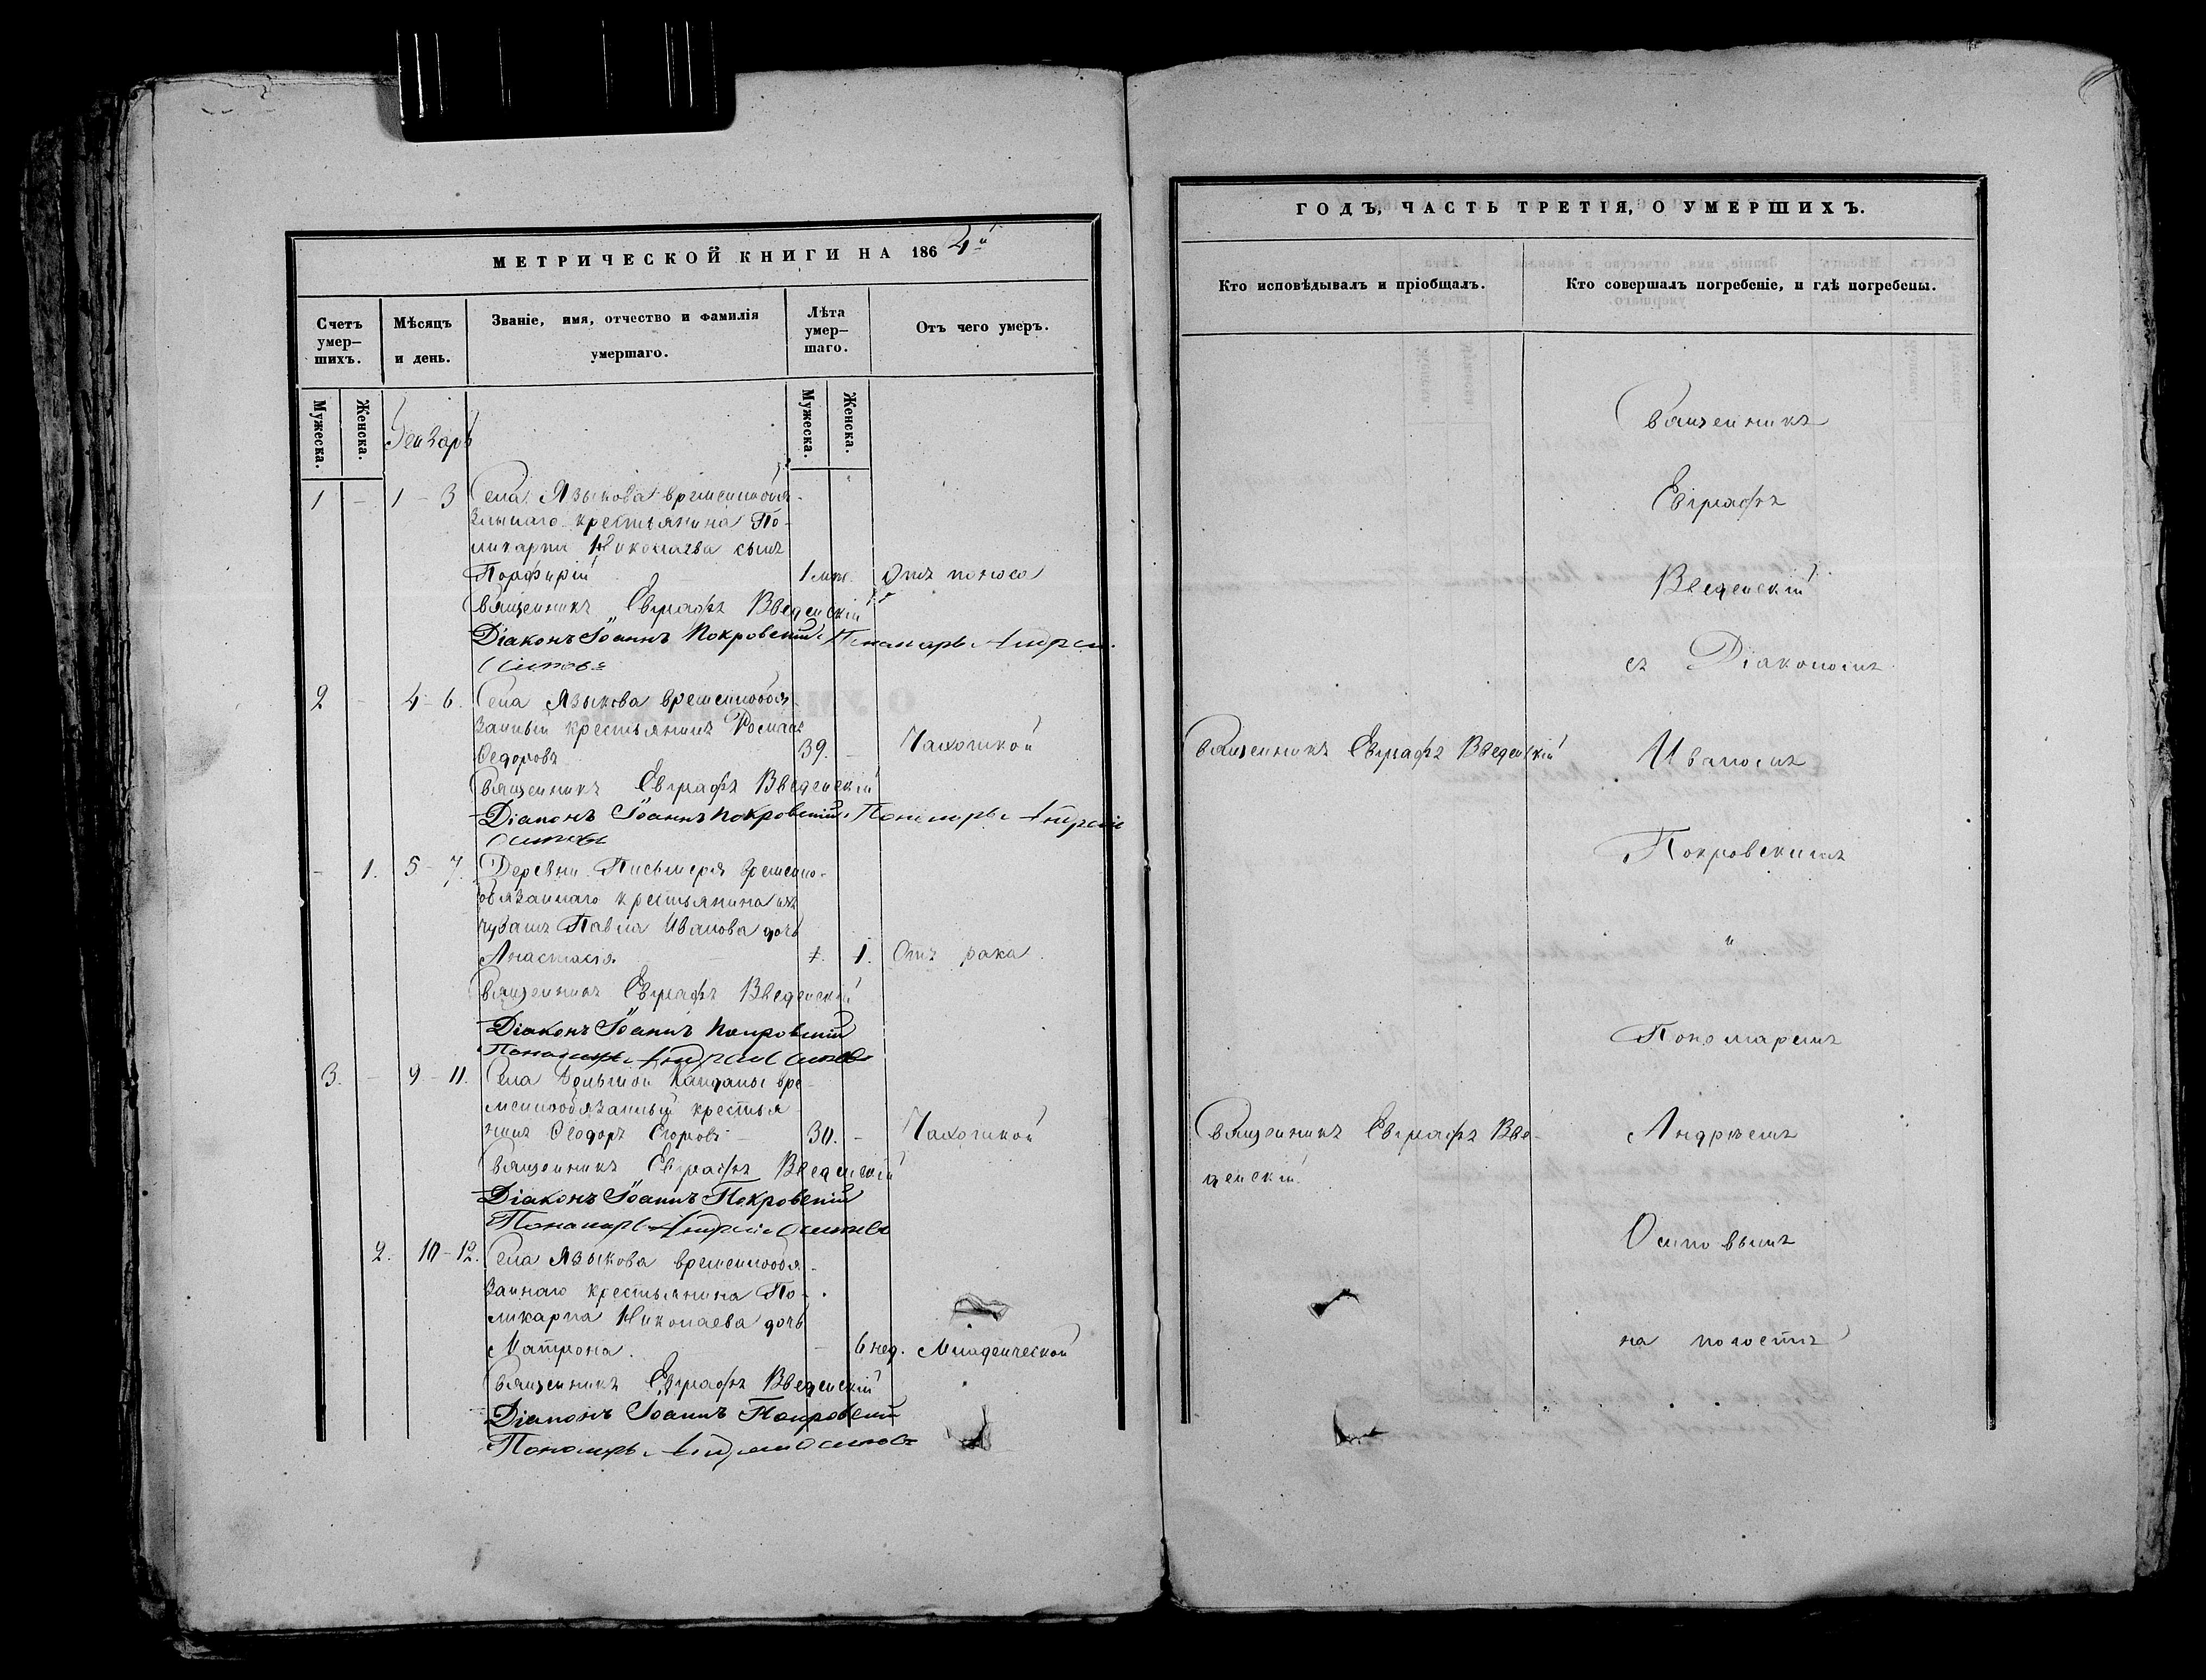 МЕТРИЧЕСКОЙ КНИГИ НА 1864й
Счетъ умер-шихъ.
Мѣсяцъ и день.
Званіе, имя, отчество и фамилія умершаго.
Лѣта умер-шаго.
Отъ чего умеръ.
Мужеска.
Женска.
Генварь
Мужеска.
Женска.
1 - 1 - 3 Села Языкова временнообя-
заннаго крестьянина По-
ликарпа Николаева сынъ
Порфирій 1 мѣс. Отъ поноса
Священникъ Евграфъ Введенскій
Діаконъ Іоаннъ Покровскій. Пономарь Андрей
Осиповъ
2 - 4 - 6. Села Языкова временнообя-
занный крестьянинъ Романъ
Ѳедоровъ 39. - Чахоткой
Священникъ Евграфъ Введенскій
Діаконъ Іоаннъ Покровскій. Пономарь Андрей
Осиповъ
- 1. 5 - 7. Деревни Письмеря временно-
обязаннаго крестьянина изъ
чувашъ Павла Иванова дочь
Анастасія 1. Отъ рака.
Священникъ Евграфъ Введенскій
Діаконъ Іоаннъ Покровскій
Пономарь Андрей Осиповъ
3. - 9 - 11. Села Большой Кандалы вре-
меннообязанный крестья-
нинъ Ѳеодоръ Егоровъ 30. - Чахоткой
Священникъ Евграфъ Введенскій
Діаконъ Іоаннъ Покровскій
Пономарь Андрей Осиповъ
2. 10 - 12. Села Языкова временнообя-
заннаго крестьянина По-
ликарпа Николаева дочь
Матрона. - 6 нед. Младенческой
Священникъ Евграфъ Введенскій
Діаконъ Іоаннъ Покровскій
Пономарь Андрей Осиповъ
ГОДЪ, ЧАСТЬ ТРЕТІЯ, О УМЕРШИХЪ.
Кто исповѣдывалъ и пріобщалъ.
Кто совершалъ погребеніе, и гдѣ погребены.
Священникъ Евграфъ Введенскій
Священникъ Евграфъ Вве-
денскій
Священникъ
Евграфъ
Введенскій
съ Діакономъ
Иваномъ
Покровскимъ
и
Пономаремъ
Андреемъ
Осиповымъ
на погостѣ